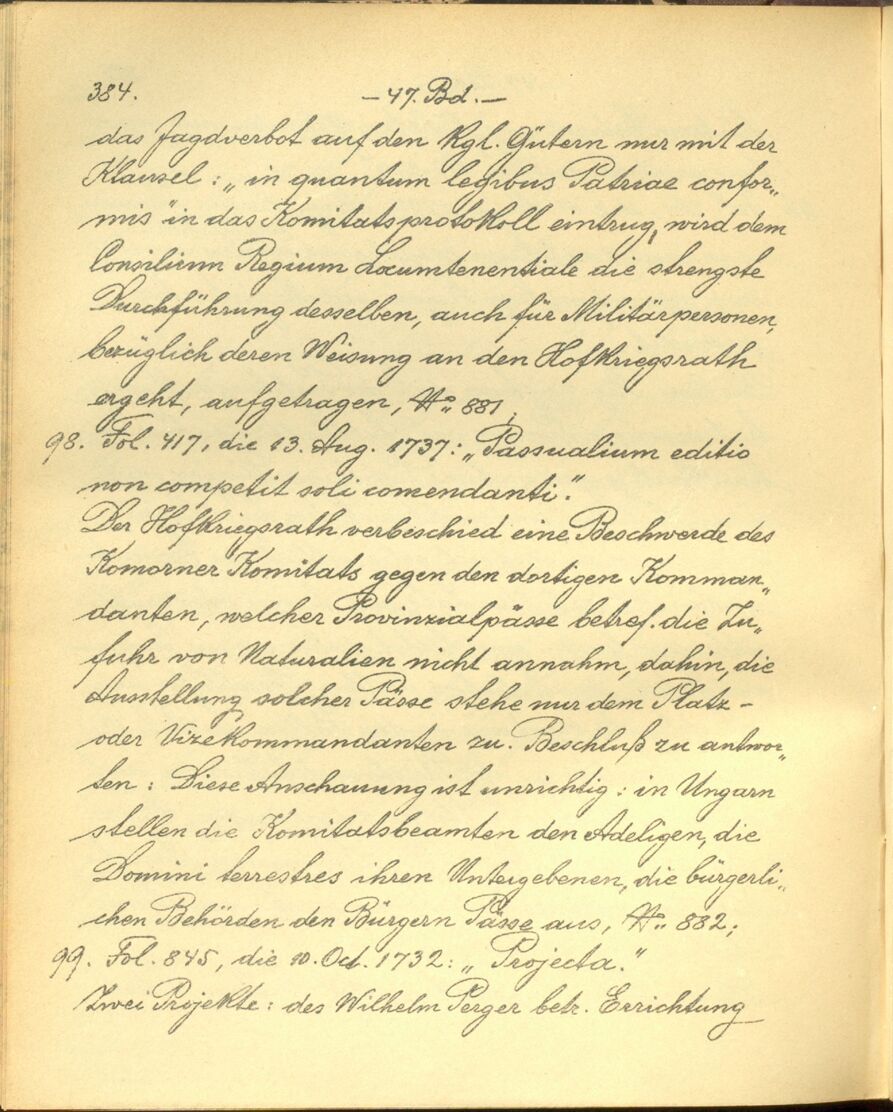 384. — 47. Bd. —
das Jagdverbot auf den Kgl. Gütern nur mit der
Klausel : „ in quantum legibus Patriae confor„
mis" in das Komitatsprotokoll eintrug, wird dem
Consilium Regium Locumtenentiale die strengste
Durchführung desselben, auch für Militärpersonen,
bezüglich deren Weisung an den Hofkriegsrath
ergeht, aufgetragen, No. 881,
98. Fol. 417, die 13. Aug. 1737: „Passualium editio
non competit soli comendanti".
Der Hofkriegsrath verbeschied eine Beschwerde des
Komorner Komitats gegen den dortigen Komman„
danten, welcher Provinzialpässe betref. die Zu„
fuhr von Naturalien nicht annahm, dahin, die
Ausstellung solcher Pässe stehe nur dem Platz -
oder Vizekommandanten zu. Beschluß zu antwor„
ten : Diese Anschauung ist unrichtig : in Ungarn
stellen die Komitatsbeamten den Adeligen, die
Domini terrestres ihren Untergebenen, die bürgerli„
chen Behörden den Bürgern Pässe aus, No. 882;
99. Fol. 845, die 10. Oct. 1732: „ Projecta."
Zwei Projekte : des Wilhelm Perger betr. Errichtung